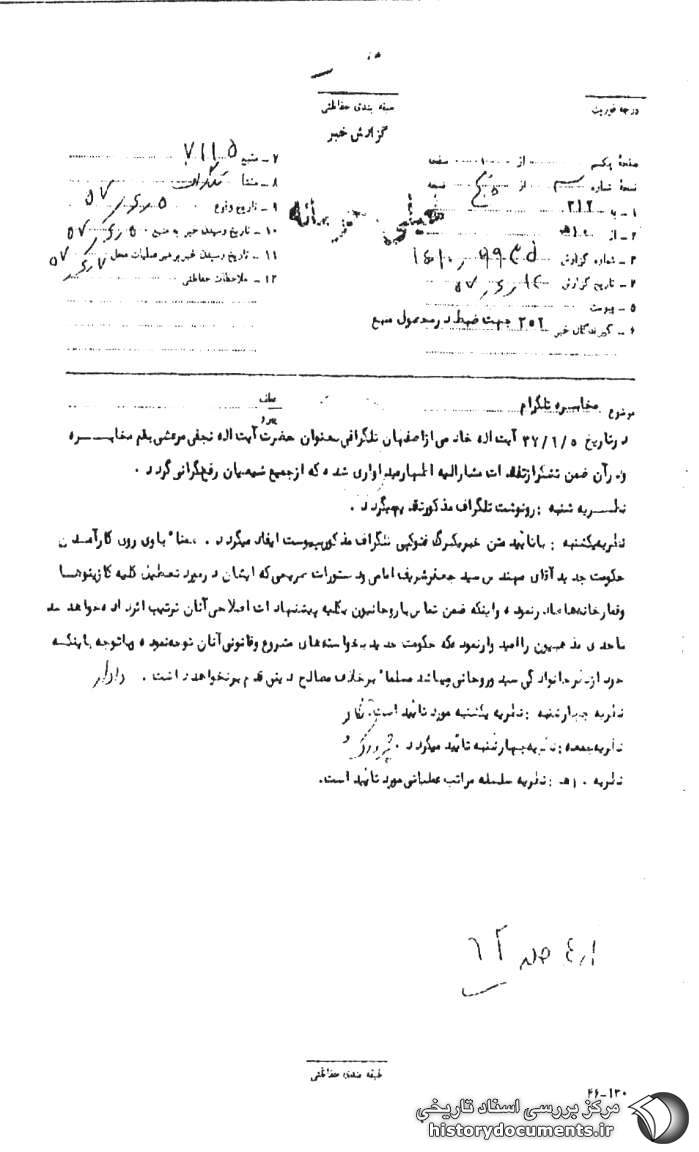 طبقه بندی حفاظتی
گزارش خبر
درجه فوریت
خیلی محرمانه
صفحه یکم از ۱۰۰۰ صفحه
نسخه شماره از نسخه
۱ - به ۳۱۲
۲ - از ۱۰ه‍
۳ - شماره گزارش
۴ - تاریخ گزارش
۵ - پیوست
۶ - گیرندگان خبر ۳۵۲ جهت ضبط در محصول منبع
۷ - منبع ۷۱۱۵
۸ - منشا تلگراف
۹ - تاریخ وقوع
۱۰ - تاریخ رسیدن خبر به منبع
۱۱ - تاریخ رسیدن خبر به رهبر عملیات محل
۱۲ - ملاحظات حفاظتی
موضوع مخابره تلگرام
عطف
پیرو
در تاریخ ۳۷/۶/۵ آیت اله خادمی از اصفهان تلگرافی بعنوان حضرت آیت اله نجفی مرعشی بقم مخابره
و در آن ضمن تشکر از تفقدات مشارالیه اظهار امیدواری شده که از جمیع شیعیان رفع نگرانی گردد .
نظریه شنبه : رونوشت تلگراف مذکور تقدیم میگردد .
نظریه یکشنبه : با تائید متن خبر یکبرگ فتوکپی تلگراف مذکور بپیوست ایفاد میگردد . ضمنا" با روی کار آمدن
حکومت جدید آقای مهندس سید جعفر شریف امامی و دستورات سریعی که ایشان در مورد تعطیل کلیه کازینوها
و قمارخانه‌ها صادر نموده و اینکه ضمن تماس با روحانیون بکلیه پیشنهادات اصلاحی آنان ترتیب اثر داده خواهد شد
تا حدی مذهبیون را امیدوار نموده که حکومت جدید بخواسته‌های مشروع و قانونی آنان توجه نموده و با توجه باینکه
خود از نظر خانوادگی سید و روحانی میباشد مسلما" برخلاف مصالح دینی قدم برنخواهد داشت .
نظریه چهارشنبه : نظریه یکشنبه مورد تائید است.
نظریه جمعه : نظریه چهارشنبه تائید میگردد .
نظریه ۱۰ه‍ : نظریه سلسله مراتب عملیاتی مورد تائید است.
طبقه بندی حفاظتی
۴۶-۱۳۰
مرکز بررسی اسناد تاریخی
historydocuments.ir